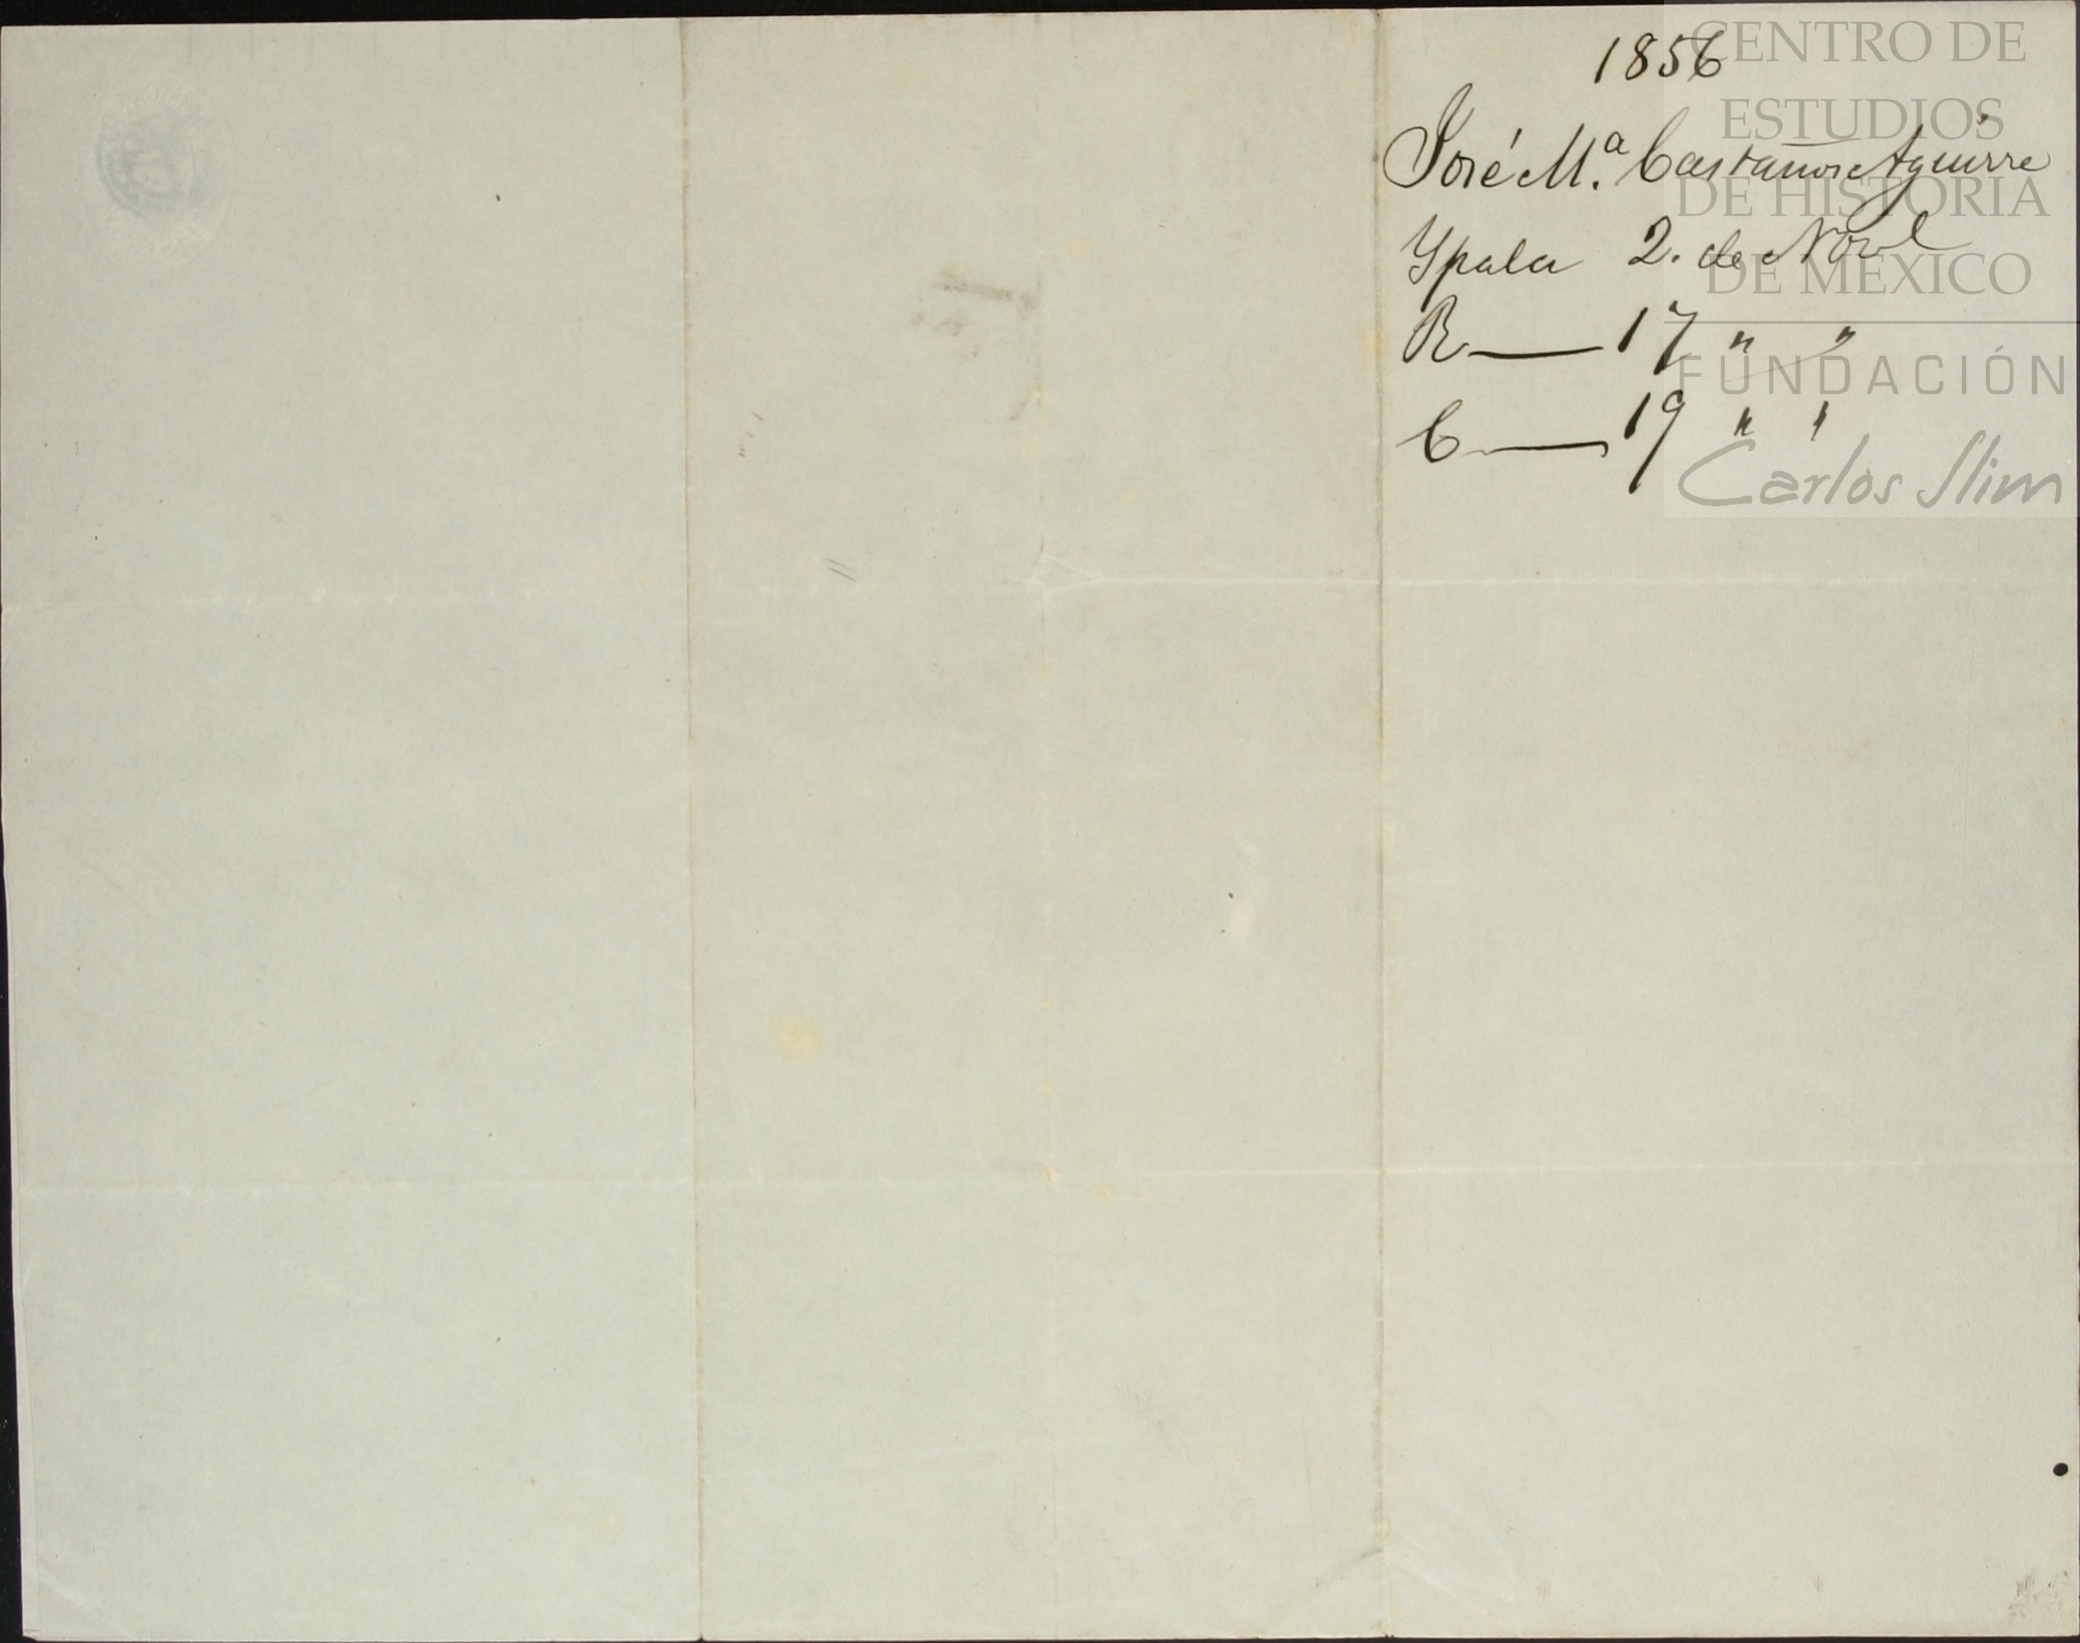 1856
José M.ª Castaños Aguirre
Ypala 2. de Nov.e
R — 17 " "
C — 19 " "
CENTRO DE
ESTUDIOS
DE HISTORIA
DE MÉXICO
FUNDACIÓN
Carlos Slim